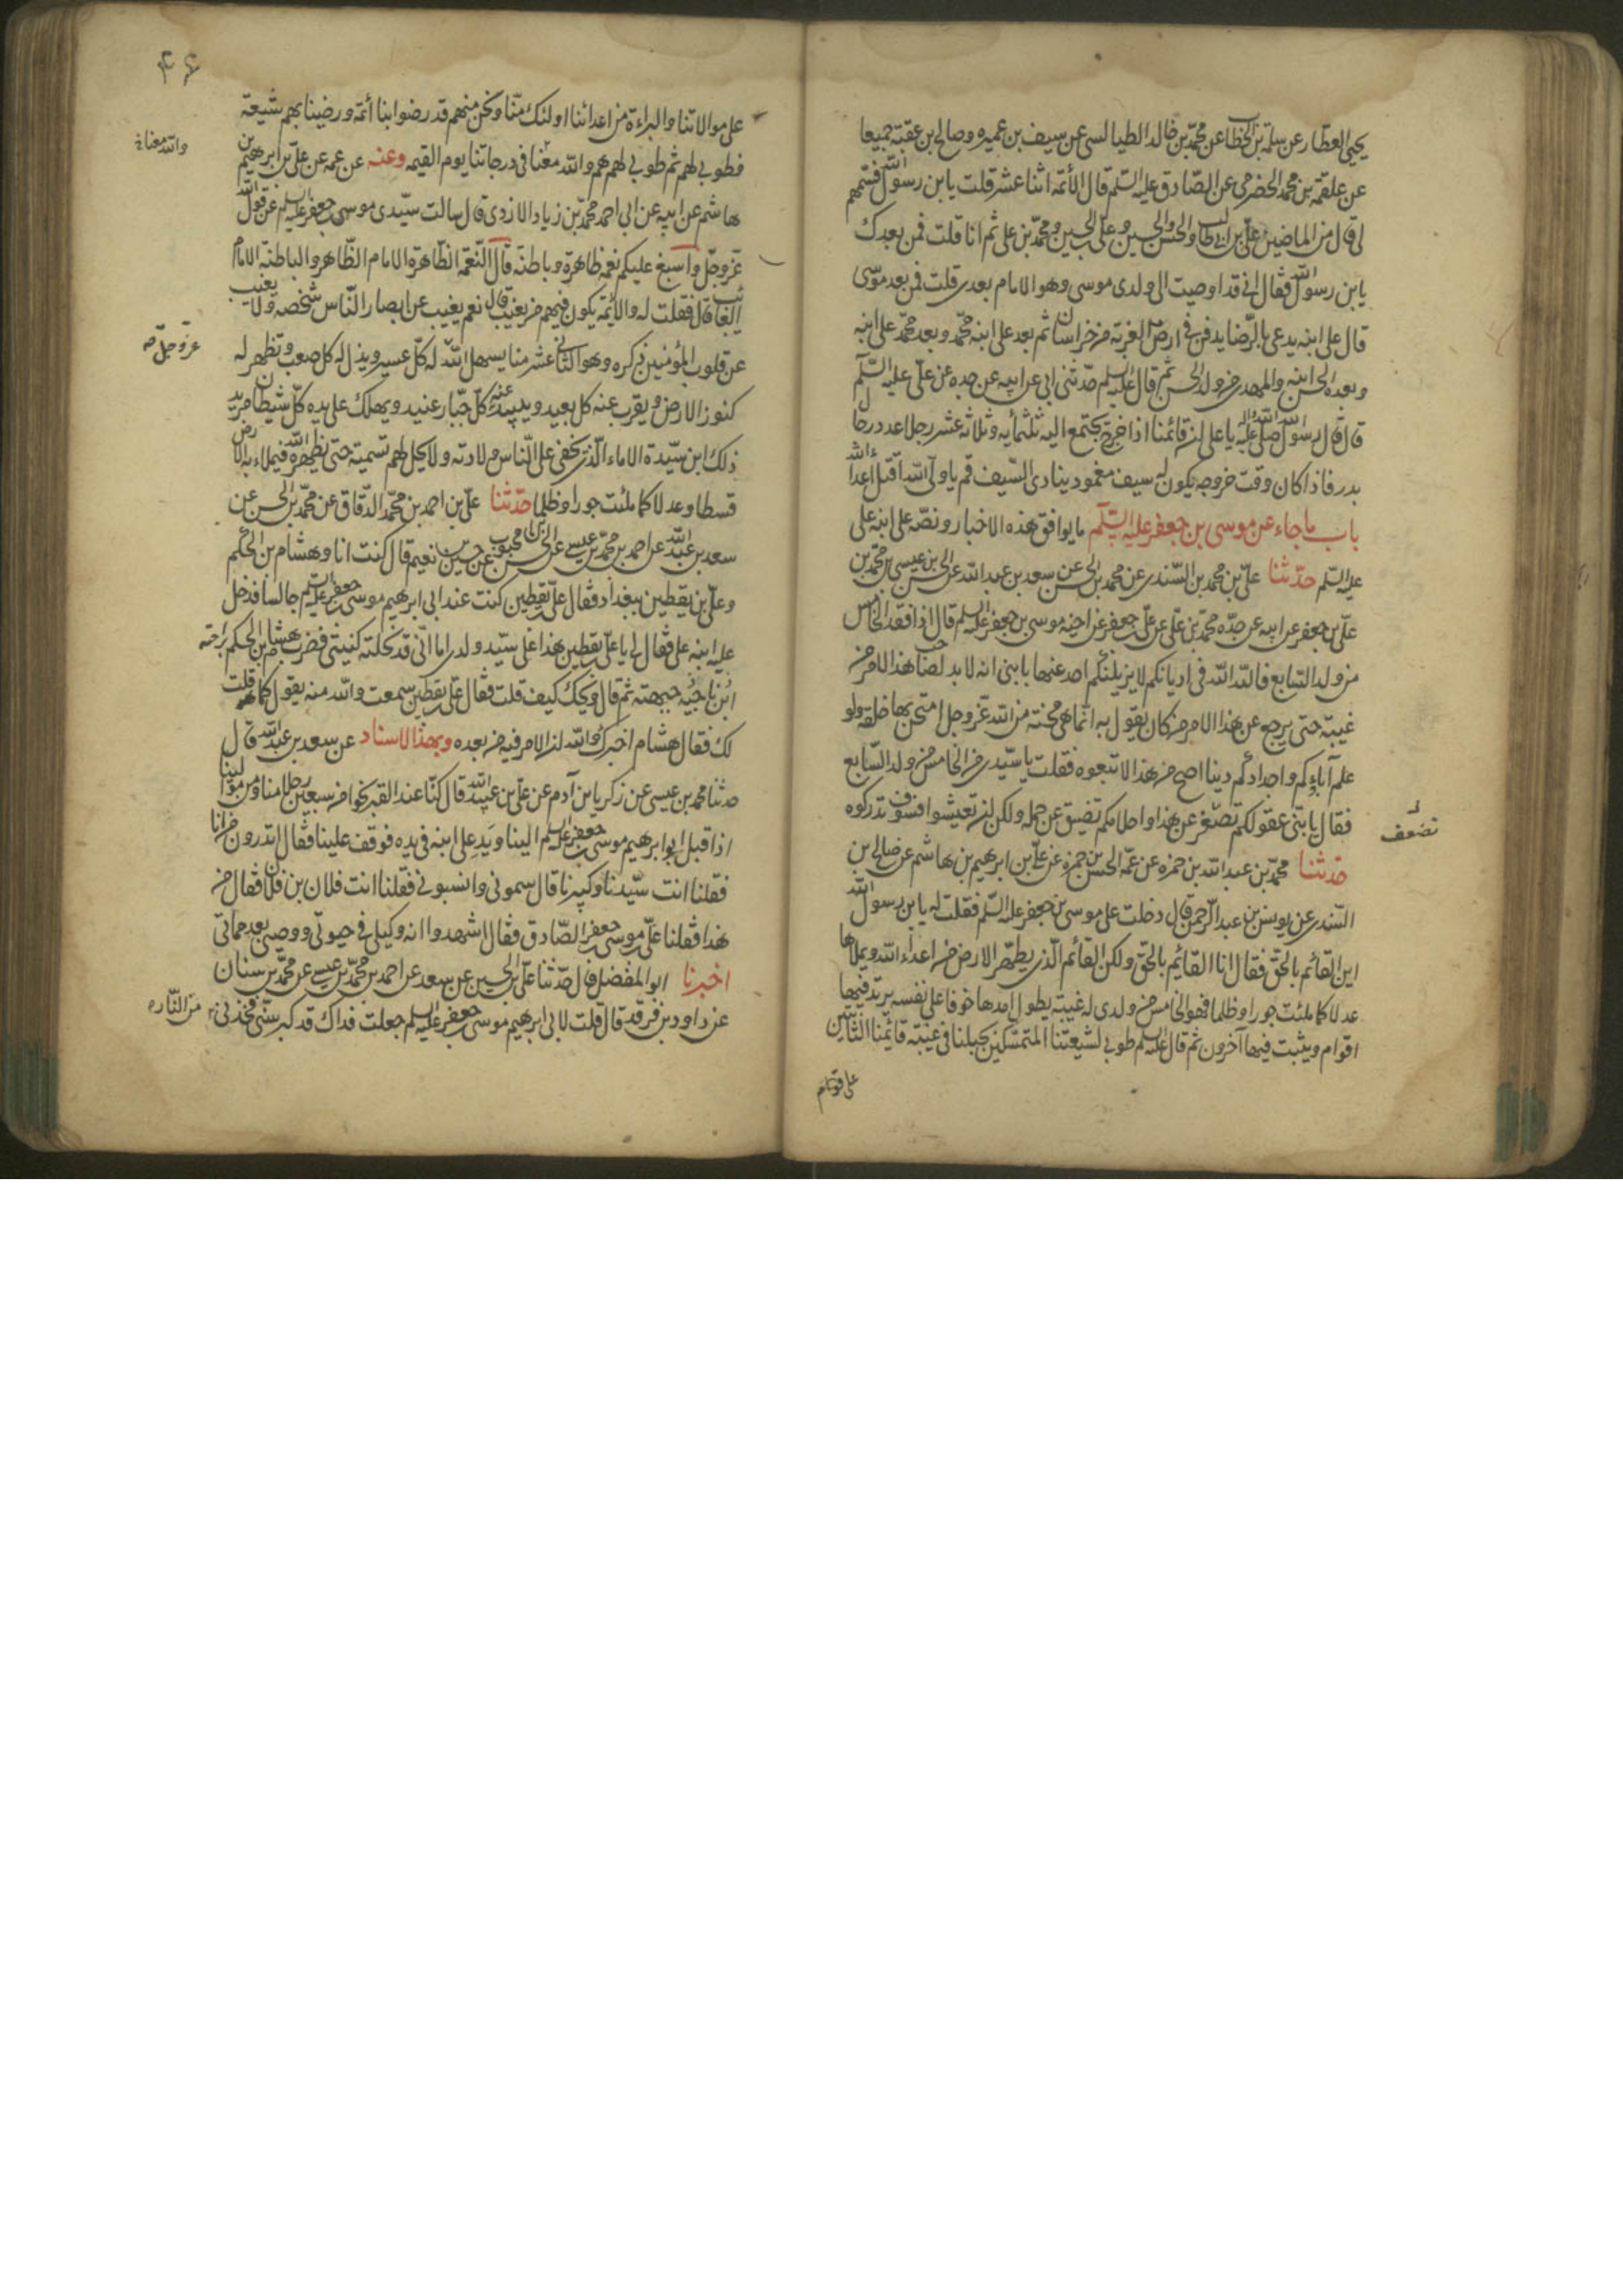 يحيى العطار عن سلمة بن الخطاب عن محمد بن خالد الطيالسي عن سيف بن عميره وصالح بن عقبة جميعا
عن علقمة بن محمد الحضرمي عن الصادق عليه السلم قال الأئمة اثنا عشر قلت يا بن رسول الله فسمهم
لي قال من الماضين علي بن ابي طالب والحسن والحسين وعلي بن الحسين ومحمد بن علي ثم انا قلت فمن بعدك
يا بن رسول الله فقال اني قد اوصيت الى ولدى موسى وهو الامام بعدى قلت فمن بعد موسى
قال على ابنه يدعى بالرضا يدفن في ارض الغربة من خراسان ثم بعد على ابنه محمد وبعد محمد على ابنه
وبعده الحسن ابنه والمهدى من ولد الحسن ثم قال عليه السلم حدثنى ابى عن ابيه عن جده عن على عليه السلم
قال قال رسول الله صلى الله عليه واله يا على ان قائمنا اذا خرج يجتمع اليه ثلثمايه وثلاثه عشر رجلا عدد رجال
بدر فاذا كان وقت خروجه يكون له سيف مغمود ينادى السيف قم يا ولى الله اقتل اعداء الله
باب ما جاء عن موسى بن جعفر عليه السلم ما يوافق هذه الاخبار ونصه على ابنه على
عليه السلم حدثنا علي بن محمد بن السندى عن محمد بن الحسن عن سعد بن عبد الله عن الحسن بن عيسى بن محمد بن
علي بن جعفر عن ابيه عن جده محمد بن على عن على بن جعفر عن اخيه موسى بن جعفر عليه السلم قال اذا فقد الخامس
من ولد السابع فالله الله فى اديانكم لا يزيلنكم احد عنها يا بنى انه لا بد لصاحب هذا الامر من
غيبة حتى يرجع عن هذا الامر من كان يقول به انما هى محنة من الله عز وجل امتحن بها خلقه ولو
علم آباؤكم واجدادكم دينا اصح من هذا لاتبعوه فقلت يا سيدى من الخامس من ولد السابع
فقال يا بنى عقولكم تصغر عن هذا واحلامكم تضيق عن حمله ولكن ان تعيشوا فسوف تدركوه
تضعف
حدثنا محمد بن عبد الله بن حمزه عن عمه الحسن بن حمزه عن على بن ابرهيم بن هاشم عن صالح بن
السندى عن يونس بن عبد الرحمن قال دخلت على موسى بن جعفر عليه السلم فقلت له يا بن رسول الله
اين القائم بالحق فقال انا القايم بالحق ولكن القائم الذى يطهر الارض من اعداء الله ويملاها
عدلا كما ملئت جورا وظلما فهو الخامس من ولدى له غيبة يطول امدها خوفا على نفسه يرتد فيها
اقوام ويثبت فيها آخرون ثم قال عليه السلم طوبى لشيعتنا المتمسكين بحبلنا فى غيبة قائمنا الثابتين
۴۶
على موالاتنا والبراءة من اعدائنا اولئك منا ونحن منهم قد رضوا بنا أئمة ورضينا بهم شيعة
فطوبى لهم ثم طوبى لهم هم والله معنا فى درجاتنا يوم القيمه وعنه عن عمه عن على بن ابرهيم بن
هاشم عن ابيه عن ابى احمد محمد بن زياد الازدى قال سالت سيدى موسى بن جعفر عليه السلم عن قول الله
عز وجل واسبغ عليكم نعمه ظاهرة وباطنة قال النعمة الظاهرة الامام الظاهر والباطنة الامام
الغائب قال فقلت له والائمة يكون فيهم من يغيب قال نعم يغيب عن ابصار الناس شخصه ولا يغيب
عن قلوب المؤمنين ذكره وهو الثانى عشر منا يسهل الله له كل عسير ويذل له كل صعب وتظهر له
عز وجل
كنوز الارض ويقرب عنه كل بعيد ويبيد عنه كل جبار عنيد ويهلك على يده كل شيطان مريد
ذلك ابن سيدة الاماء الذى تخفى على الناس ولادته ولا يحل لهم تسميته حتى يظهره الله فيملاء به الارض
قسطا وعدلا كما ملئت جورا وظلما حدثنا على بن احمد بن محمد الدقاق عن محمد بن الحسن عن
سعد بن عبد الله عن احمد بن محمد بن عيسى عن الحسن بن محبوب عن حسين بن نعيم قال كنت انا وهشام بن الحكم
وعلى بن يقطين ببغداد فقال على بن يقطين كنت عند ابى ابرهيم موسى بن جعفر عليه السلم جالسا فدخل
عليه ابنه على فقال لى يا على بن يقطين هذا على سيد ولدى اما انى قد نحلته كنيتى فضرب هشام بن الحكم براحته
جبهته ثم قال ويحك كيف قلت فقال على بن يقطين سمعت والله منه يقول كما قلت
لك فقال هشام اخبرك والله ان الامر فيه من بعده وبهذا الاسناد عن سعد بن عبد الله قال
حدثنا محمد بن عيسى عن زكريا بن آدم عن على بن عبد الله قال كنا عند القبر نحوا من سبعين رجلا منا ومن موالينا
اذا قبل ابو ابرهيم موسى بن جعفر عليه السلم الينا ويد على ابنه فى يده فوقف علينا فقال اتدرون من انا
فقلنا انت سيدنا وكبيرنا قال سمونى وانسبونى فقلنا انت فلان بن فلان فقال من
هذا فقلنا على بن موسى بن جعفر الصادق فقال اشهدوا انه وكيلى فى حيوتى ووصيى بعد مماتى
اخبرنا ابو المفضل قال حدثنا على بن الحسين عن سعد عن احمد بن محمد بن عيسى عن محمد بن سنان
عن داود بن فرقد قال قلت لابى ابرهيم موسى بن جعفر عليه السلم جعلت فداك قد كبر سنى فخذ بى
من النار